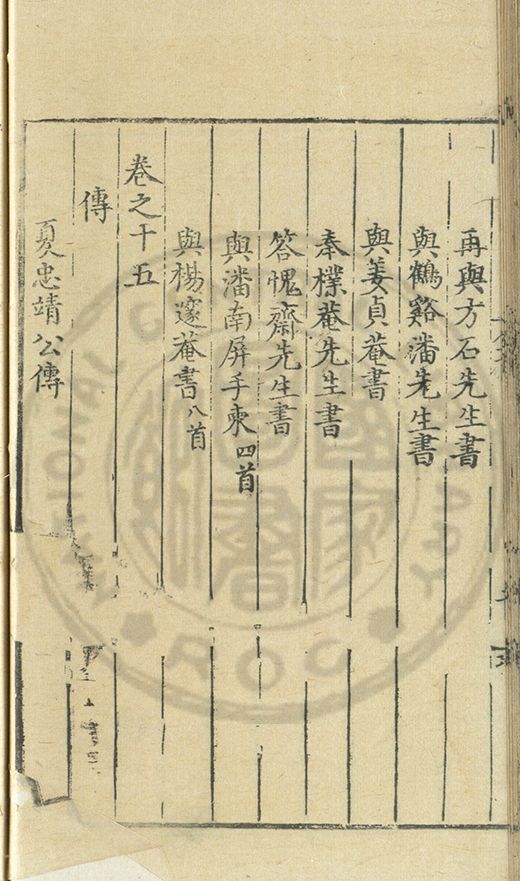 再與方石先生書
與鶴谿潘先生書
與姜貞菴書
奉檏菴先生書
答愧齋先生書
與潘南屏手柬四首
與楊邃菴書八首
卷之十五
傳
夏忠靖公傳